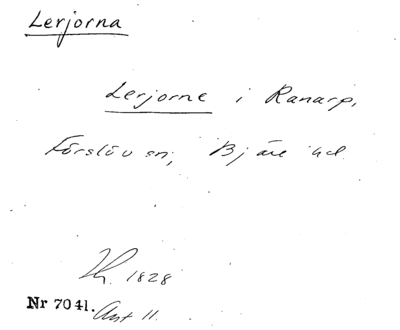 Lerjorna
Lerjorne i Ranarp,
Förslöv sn, Bjäre hd.
1828
Nr 7041. Ant 11.